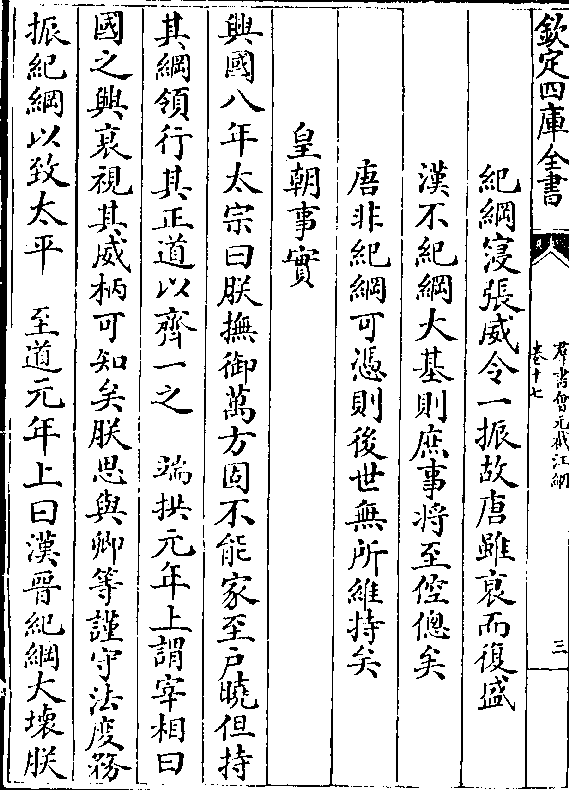 欽定四庫全書
羣書會元截江網
卷十七
三
紀綱寖張威令一振故唐雖衰而復盛
漢不紀綱大基則庶事將至倥傯矣
唐非紀綱可憑則後世無所維持矣
皇朝事實
興國八年太宗曰朕撫御萬方固不能家至戶曉但持
其綱領行其正道以齊一之 端拱元年上謂宰相曰
國之興衰視其威柄可知矣朕思與卿等謹守法度務
振紀綱以致太平 至道元年上曰漢晉紀綱大壞朕